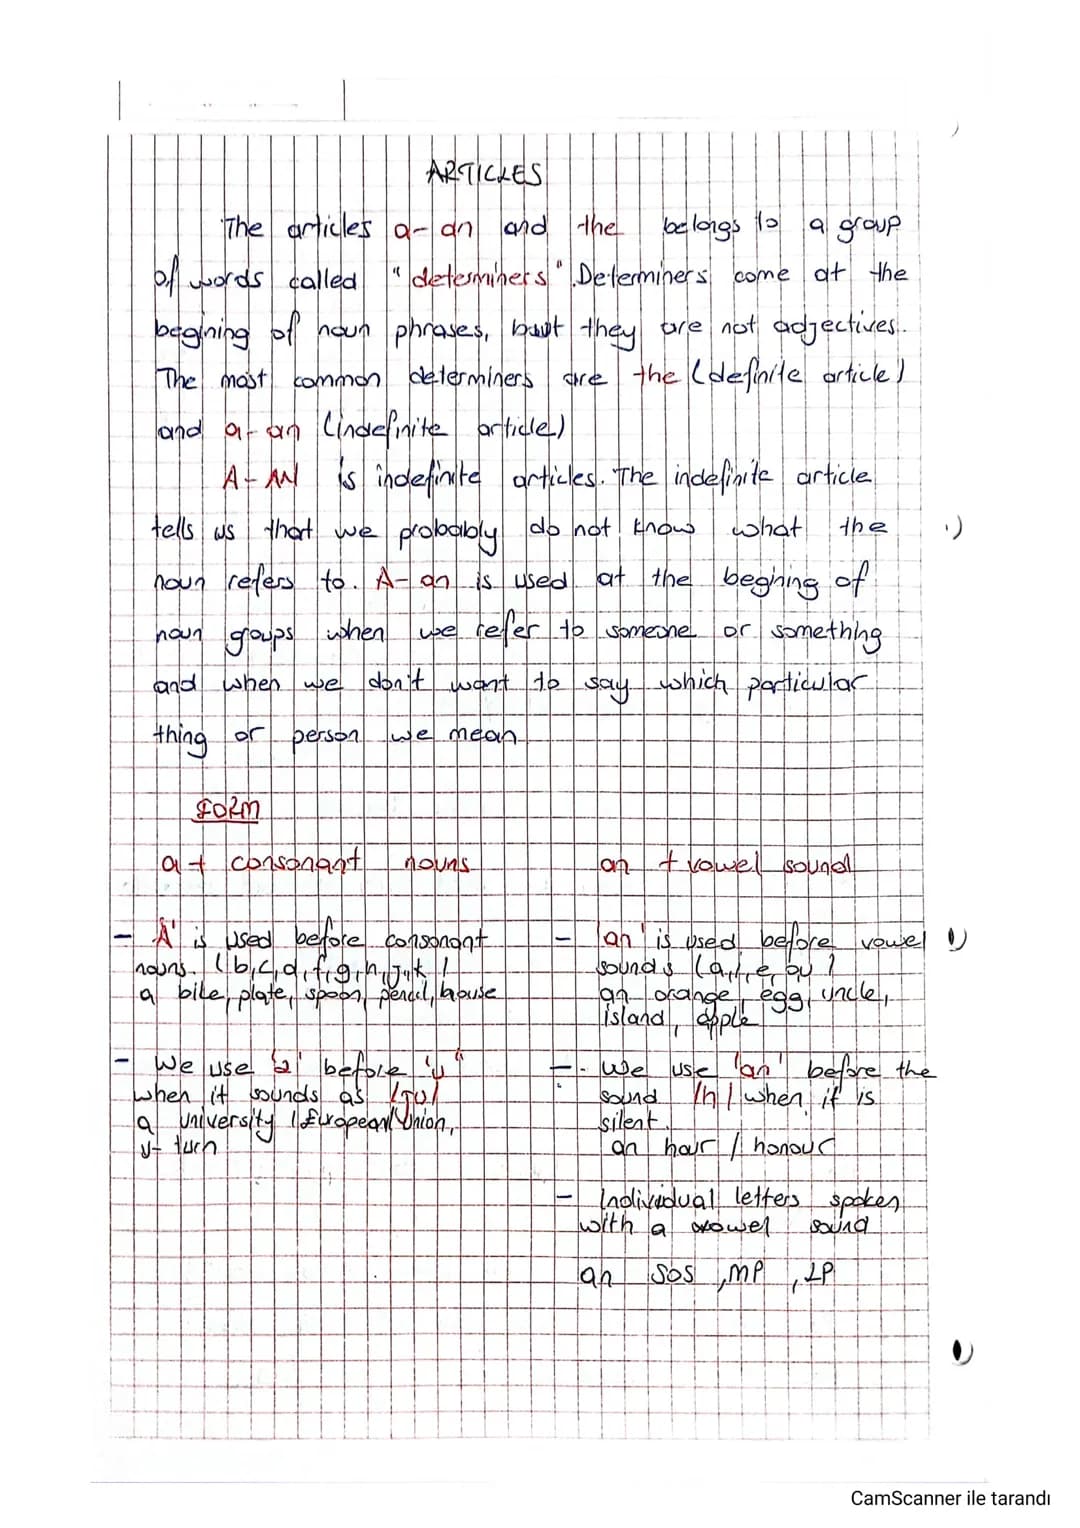 ARTICLES
The articles a-an and the belongs to a group
of words called "determiners". Determiners come at the
begining of noun phrases, but they are not adjectives.
The most common determiners are the (definite article)
and a-an (indefinite article)
A-AN is indefinite articles. The indefinite article
tells us that we probably do not know what the
noun refers to. A-an is used at the begining of
noun goups when we refer to someone or something
and when we don't want to say which particular
thing or person we mean
FORM
a + consonant nouns
- 'A' is used before consonant
nouns. (b,c,d,f,g,h,j,k)
a bike, plate, spoon, pencil, house
- We use 'a' before "u"
when it sounds as /JU/
a university / European Union,
u-turn
an + vowel sound
- 'an' is used before vowel
sounds (a,i,e,o,u)
an orange, egg, uncle,
island, apple
- We use 'an' before the
sound /h/ when it is
silent.
an hour / honour
- Individual letters spoken
with a vowel sound
an SOS, MP, LP
CamScanner ile tarandı